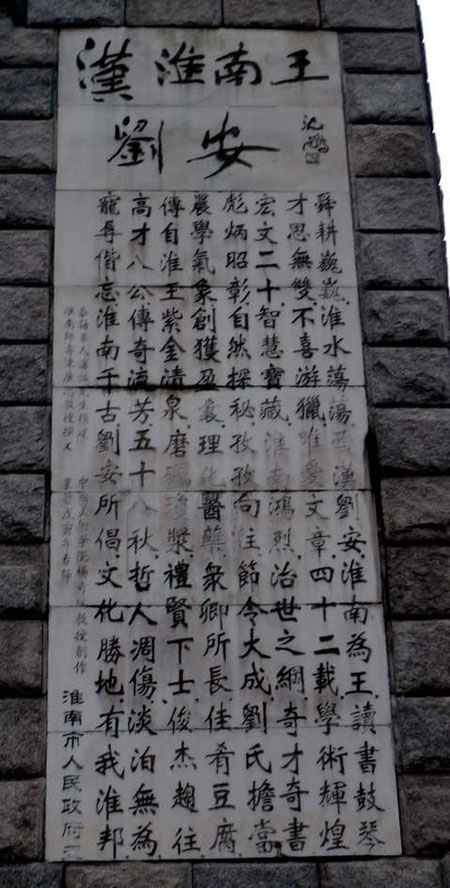 漢淮南王
劉安
舜耕巍巍淮水蕩蕩西漢劉安淮南為王讀書鼓琴
才思無雙不喜游獵唯愛文章四十二載學術輝煌
宏文二十智慧寶藏淮南鴻烈治世之綱奇才奇書
彪炳昭彰自然探秘孜孜向往節令大成劉氏擔當
農學氣象創獲盈囊理化醫藥衆卿所長佳肴豆腐
傳自淮王紫金清泉磨漿禮賢下士俊杰趨往
高才八公傳奇流芳五十八秋哲人凋傷淡泊無為
寵辱偕忘淮南千古劉安所倡文化勝地有我淮邦
淮南市人民政府